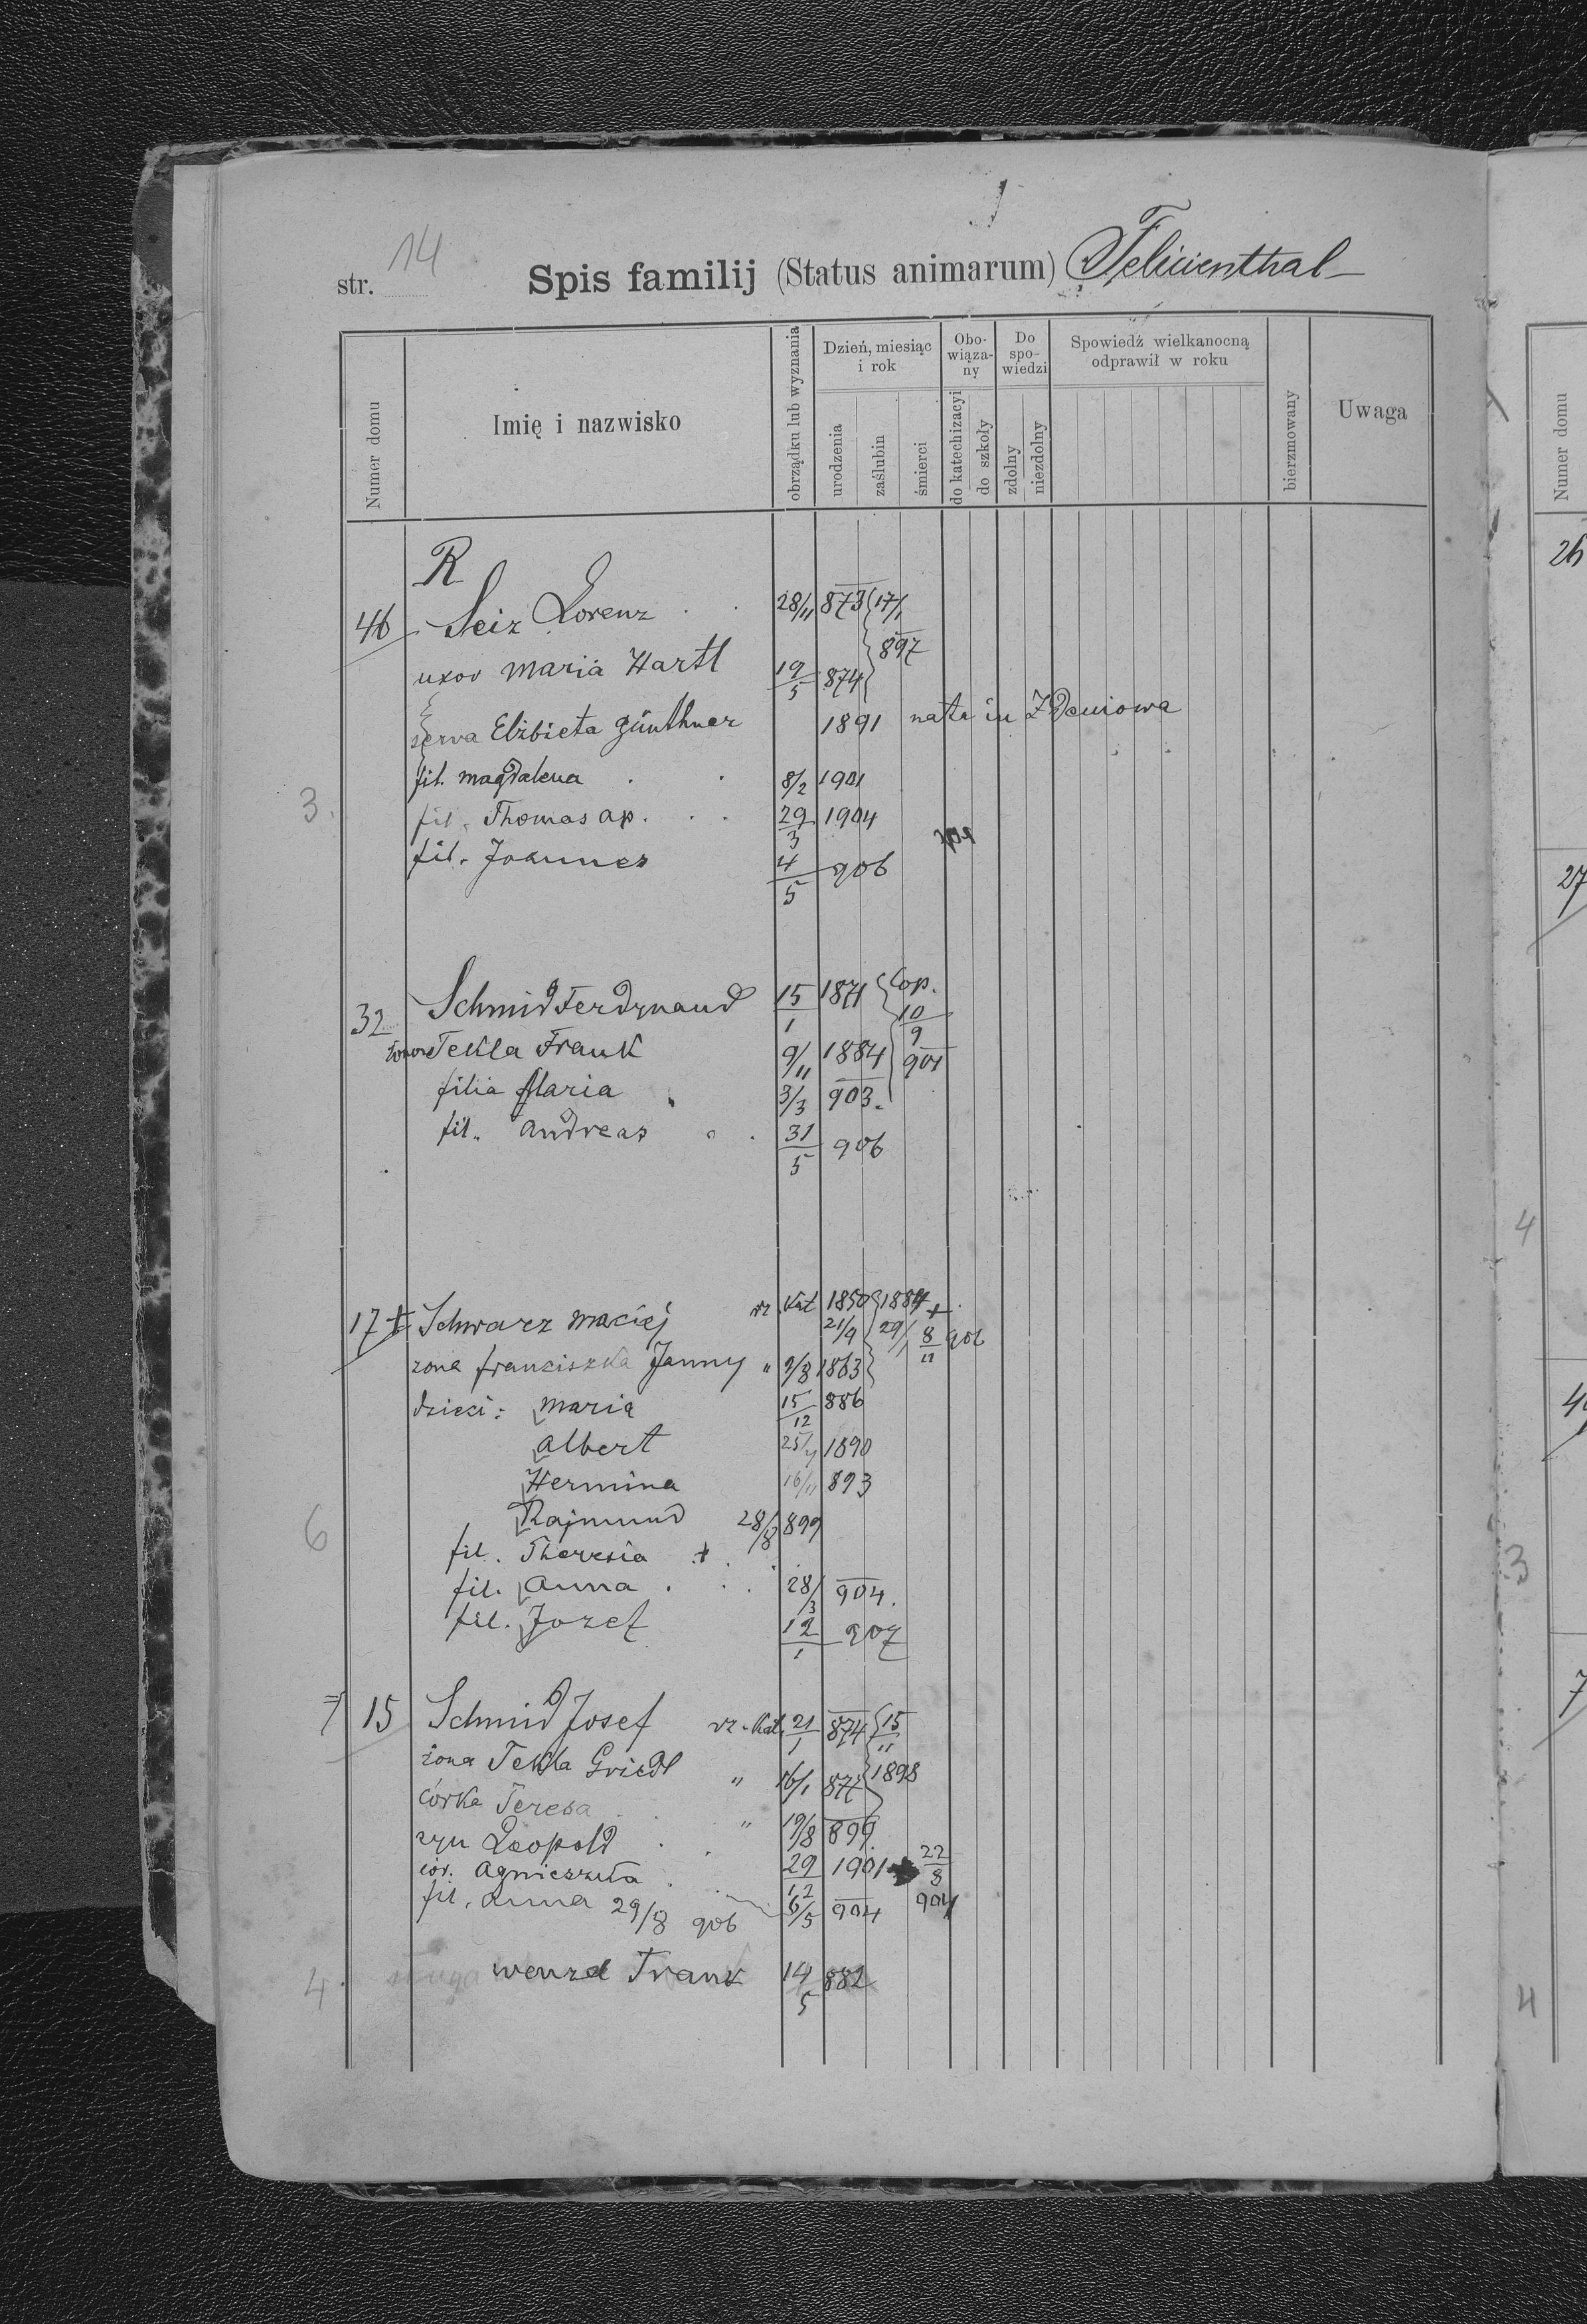 str. 14 Spis familij (Status animarum) Felizienthal
Numer domu
Imię i nazwisko
obrządku lub wyznania
Dzień, miesiąc i rok
urodzenia
zaślubin
śmierci
Obo-wiąza-ny
do katechizacyi
do szkoły
Do spo-wiedzi
zdolny
niezdolny
Spowiedź wielkanocną odprawił w roku
bierzmowany
Uwaga
R
46 Seiz Lorenz 28/11 873 17/1
897
uxor Maria Hartl 19/5 874
serva Elżbieta Günthner 1891 nata in Zdeniowa
fil. Magdalena 8/2 1901
3.
fil. Thomas ap. 29/3 1904
fil. Joannes 4/5 906
32 Schmid Ferdynand 15/1 1871 Cop. 10/9
żona Tekla Frank 9/11 1884 901
filia Maria 3/3 903.
fil. Andreas 31/5 906
17 + Schwarz Maciej rz. Kat 1850 21/9 1884 29/1 + 8/11 906
żona Franciszka Janny " 9/8 1863
dzieci: Maria 15/12 886
Albert 25/4 1890
Hermina 16/11 893
6
Rajmund 28/8 899
fil. Theresia +
fil. Anna 28/3 904.
fil. Jozef 12/1 907
15 Schmid Josef rz. Kat. 21/1 874 15/11
żona Tekla Griedl " 16/1 877 1898
córka Teresa " 19/8 899
syn Leopold 29/12 1901 22/8 904
cór. Agnieszka 6/5 904
fil. Anna 29/8 906
4. sługa Wenzel Frank 14/5 882
Numer domu
26
27
4
3
7
4